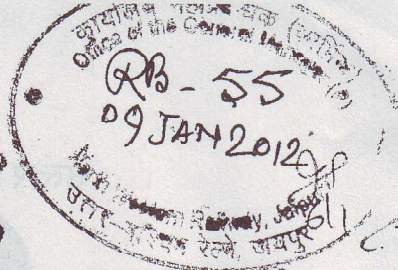 कार्यालय महाप्रबंधक (कार्मिक)
Office of the General Manager (P)
RB - 55
09 JAN 2012
North Western Railway, Jaipur
उत्तर-पश्चिम रेल्वे, जयपुर
6/1